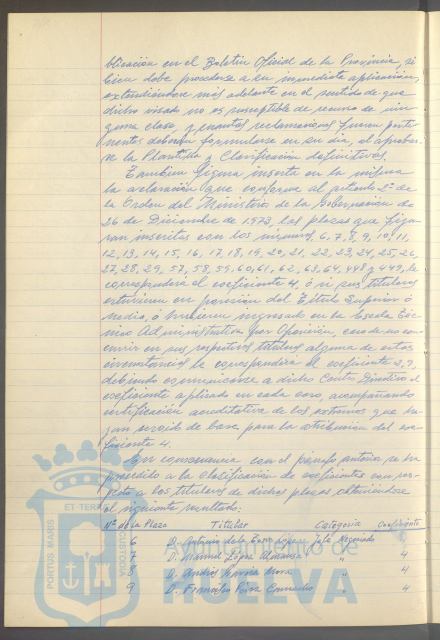 blicación en el Boletín Oficial de la Provincia, si
bien debe procederse a su inmediata aplicación,
extendiéndose más adelante en el sentido de que
dicho visado no es susceptible de recurso de nin-
guna clase, y cuantas reclamaciones fueren perti-
nentes deberán formularse en su día, al aprobar-
se la Plantilla y Clasificación definitivas.
También figura inserta en la misma
la aclaración que conforme al artículo 2º de
la Orden del Ministerio de la Gobernación de
26 de Diciembre de 1973, las plazas que figu-
ran inscritas con los números, 6, 7, 8, 9, 10, 11,
12, 13, 14, 15, 16, 17, 18, 19, 20, 21, 22, 23, 24, 25, 26,
27, 28, 29, 57, 58, 59, 60, 61, 62, 63, 64, 448 y 449, le
corresponderá el coeficiente 4, ó si sus titulares
estuvieren en posesión del Título Superior ó
medio, ó hubieren ingresado en la Escala Téc-
nico Administrativa por Oposición, caso de no con-
currir en sus respectivos titulares alguna de estas
circunstancias le corresponderá el coeficiente 2,9,
debiendo comunicarse a dicho Centro Directivo el
coeficiente aplicado en cada caso, acompañando
certificación acreditativa de los extremos que ha-
yan servido de base para la atribución del coe-
ficiente 4.
En consecuencia con el párrafo anterior se ha
procedido a la clasificación de coeficientes con res-
pecto a los titulares de dichas plazas, obteniéndose
el siguiente resultado:
Nº de la Plaza Titular Categoría Coeficiente
6 D. Antonio de la Jefe Negociado
7 D. Manuel López " 4
8 D. Andrés García Mora " 4
9 D. Francisco Pérez " 4
PORTUS MARIS ET TERRAE CUSTODIA
Ayuntamiento de
HUELVA